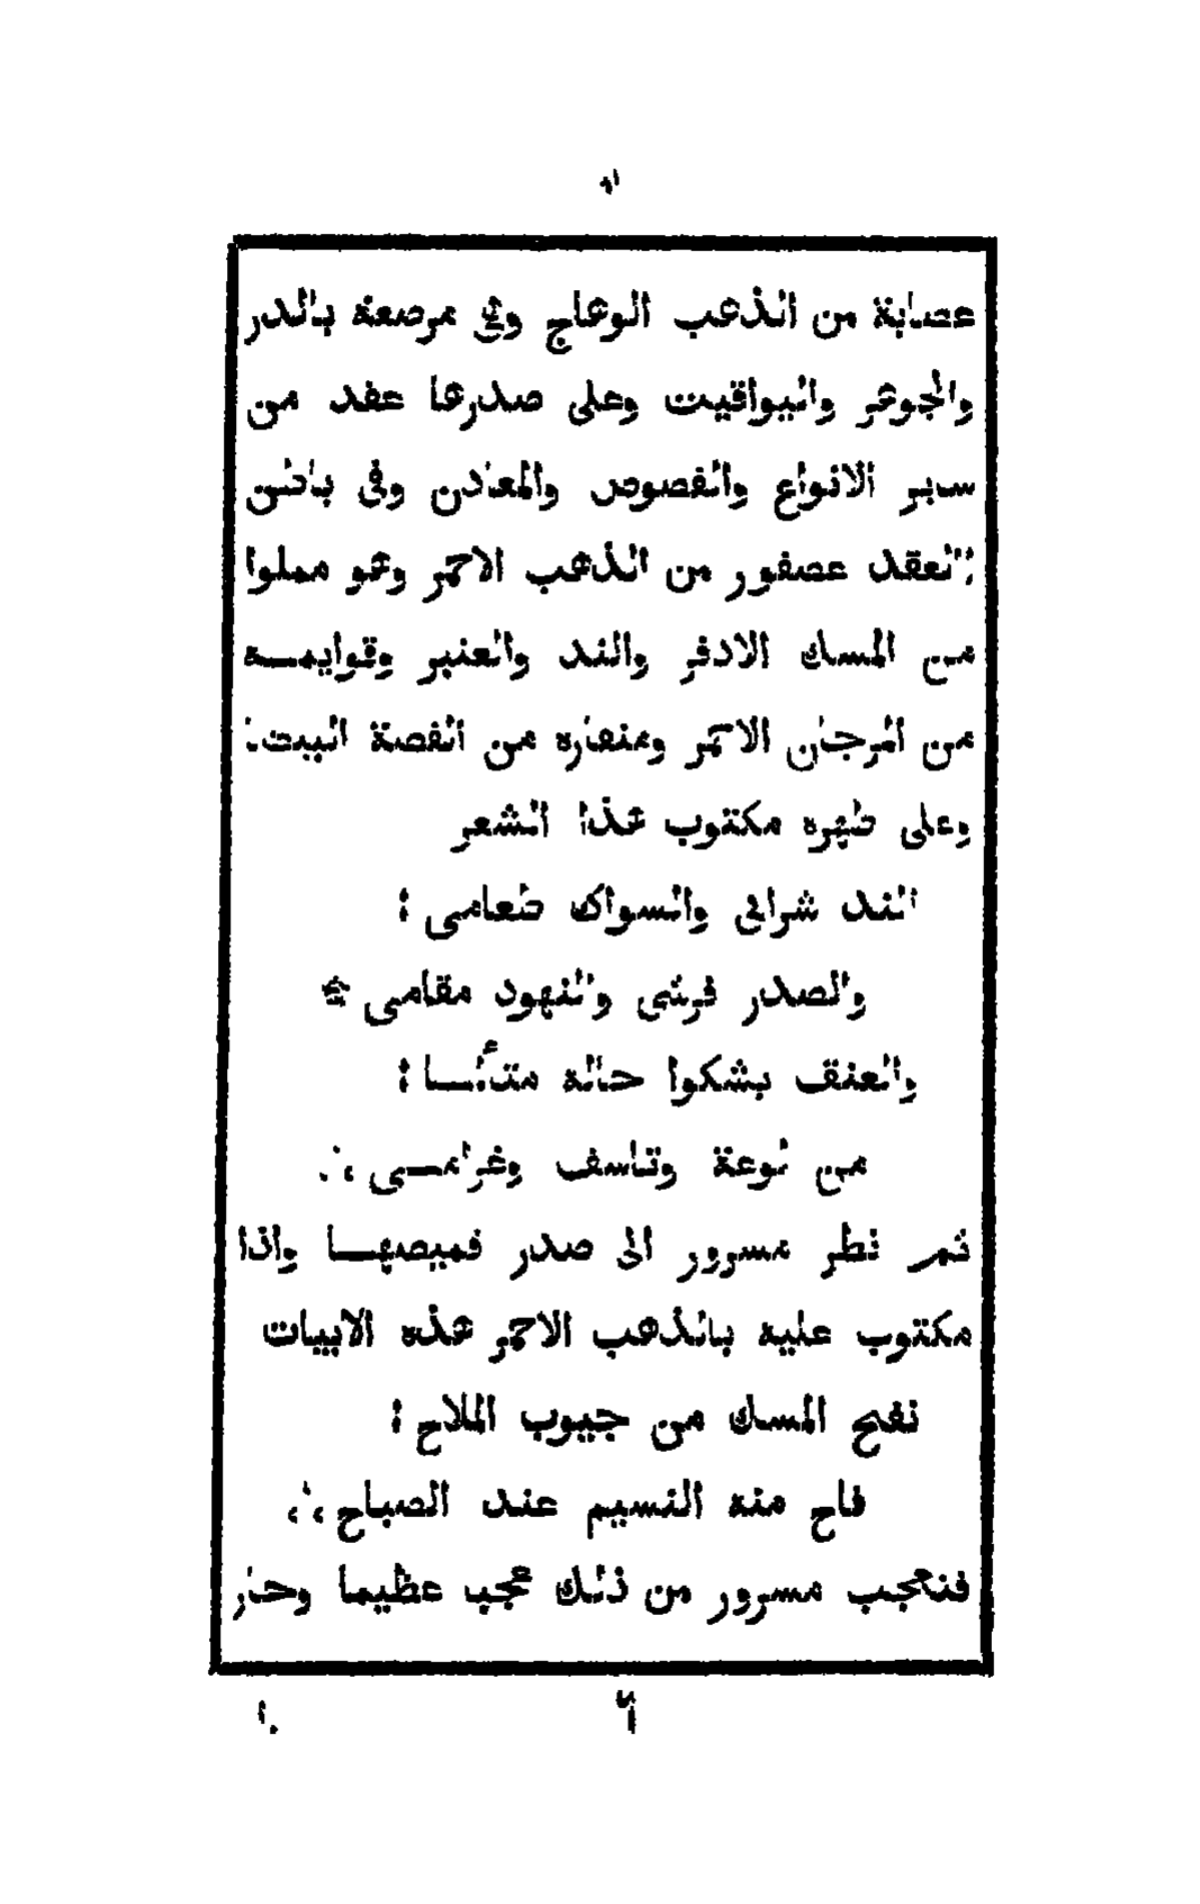 عصابة من الذهب الوهاج وهي مرصعة بالدر
والجوهر واليواقيت وعلى صدرها عقد من
ساير الانواع والفصوص والمعادن وفى باطن
العقد عصفور من الذهب الاحمر وهو مملوا
من المسك الادفر والند والعنبر وقوايمـــه
من المرجان الاحمر ومنقاره من الفضة البيضا
وعلى ظهره مكتوب هذا الشعر
الند شرابى والسواك طعامى ؛
والصدر فرشى والنهود مقامى ۞
والعنق يشكوا حاله متألمـــا ؛
من لوعة وتاسف وغرامـــى ؞
ثم نظر مسرور الى صدر قميصهـــا واذا
مكتوب عليه بالذهب الاحمر هذه الابيات
نفح المسك من جيوب الملاح ؛
فاح منه النسيم عند الصباح ؞
فتعجب مسرور من ذلك عجب عظيما وحار